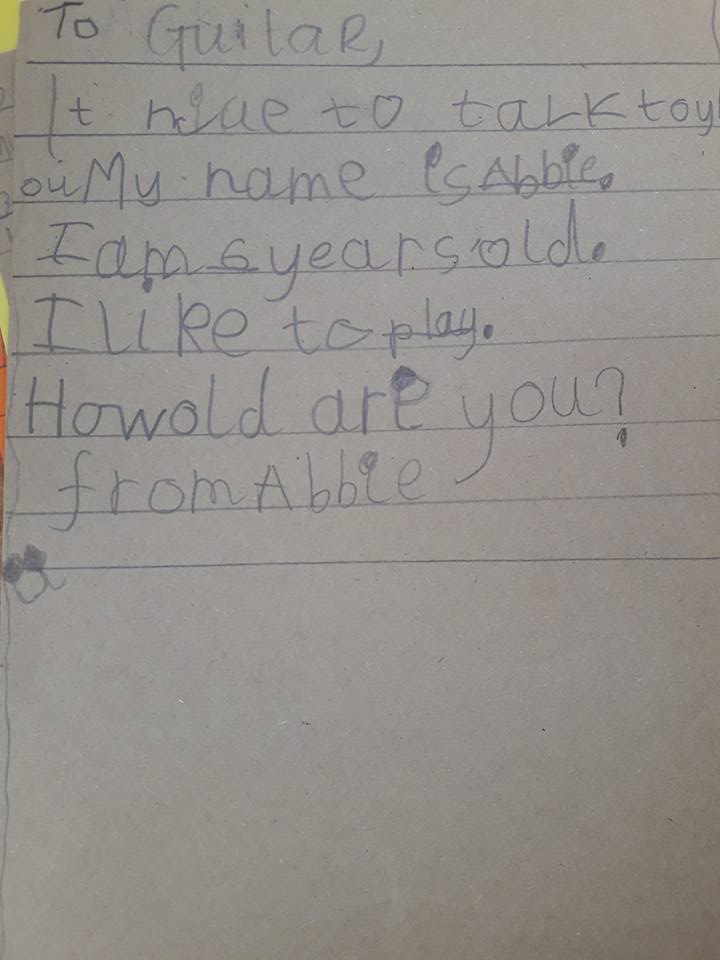 To Guitar,
It niae to talk toy
ou My name is Abbie.
I am 6 years old.
I like to play.
How old are you?
from Abbie